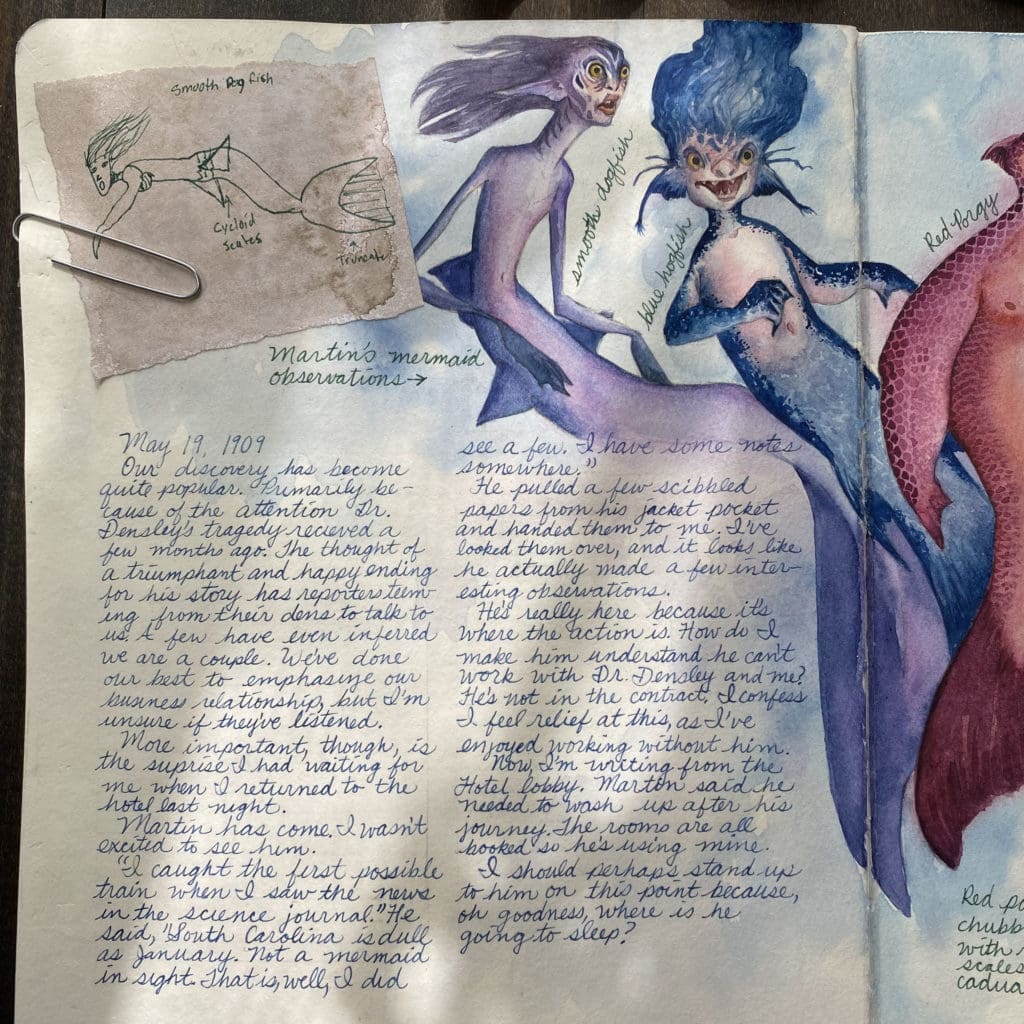 Smooth Dog fish
Cycloid
scales
Truncate
smooth dogfish
blue hogfish
Red Porgy
Martin's mermaid
observations→
May 19, 1909
Our discovery has become
quite popular. Primarily be-
cause of the attention Dr.
Densley's tragedy recieved a
few months ago. The thought of
a triumphant and happy ending
for his story has reporters teem-
ing from their dens to talk to
us. A few have even inferred
we are a couple. We've done
our best to emphasize our
business relationship, but I'm
unsure if they've listened.
More important, though, is
the suprise I had waiting for
me when I returned to the
hotel last night.
Martin has come. I wasn't
excited to see him.
"I caught the first possible
train when I saw the news
in the science journal." He
said, "South Carolina is dull
as January. Not a mermaid
in sight. That is, well, I did
see a few. I have some notes
somewhere."
He pulled a few scibbled
papers from his jacket pocket
and handed them to me. I've
looked them over, and it looks like
he actually made a few inter-
esting observations.
He's really here because it's
where the action is. How do I
make him understand he can't
work with Dr. Densley and me?
He's not in the contract. I confess
I feel relief at this, as I've
enjoyed working without him.
Now, I'm writing from the
Hotel lobby. Martin said he
needed to wash up after his
journey. The rooms are all
booked so he's using mine.
I should perhaps stand up
to him on this point because,
oh goodness, where is he
going to sleep?
Red po
chubb
with
scales
cadua